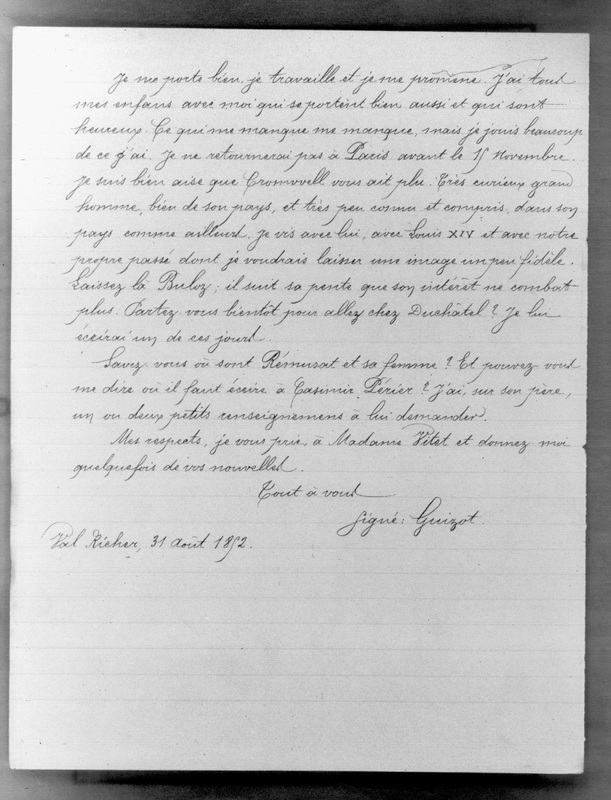 Je me porte bien, je travaille et je me promène. J'ai tous
mes enfans avec moi qui se portent bien aussi et qui sont
heureux. Ce qui me manque me manque, mais je jouis beaucoup
de ce q j'ai. Je ne retournerai pas à Paris avant le 15 novembre.
Je suis bien aise que Cromwell vous ait plu. Très curieux grand
homme, bien de son pays, et très peu connu et compris, dans son
pays comme ailleurs. Je vis avec lui, avec Louis XIV et avec notre
propre passé dont je voudrais laisser une image un peu fidèle.
Laissez là Buloz; il suit sa pente que son intérêt ne combat
plus. Partez vous bientôt pour allez chez Duchâtel? Je lui
écrirai un de ces jours.
Savez vous où sont Rémusat et sa femme? Et pouvez vous
me dire où il faut écrire à Casimir Périer? J'ai, sur son père,
un ou deux petits renseignemens à lui demander.
Mes respects, je vous prie, à Madame Vitet et donnez moi
quelquefois de vos nouvelles.
Tout à vous
Signé: Guizot.
Val Richer, 31 août 1852.